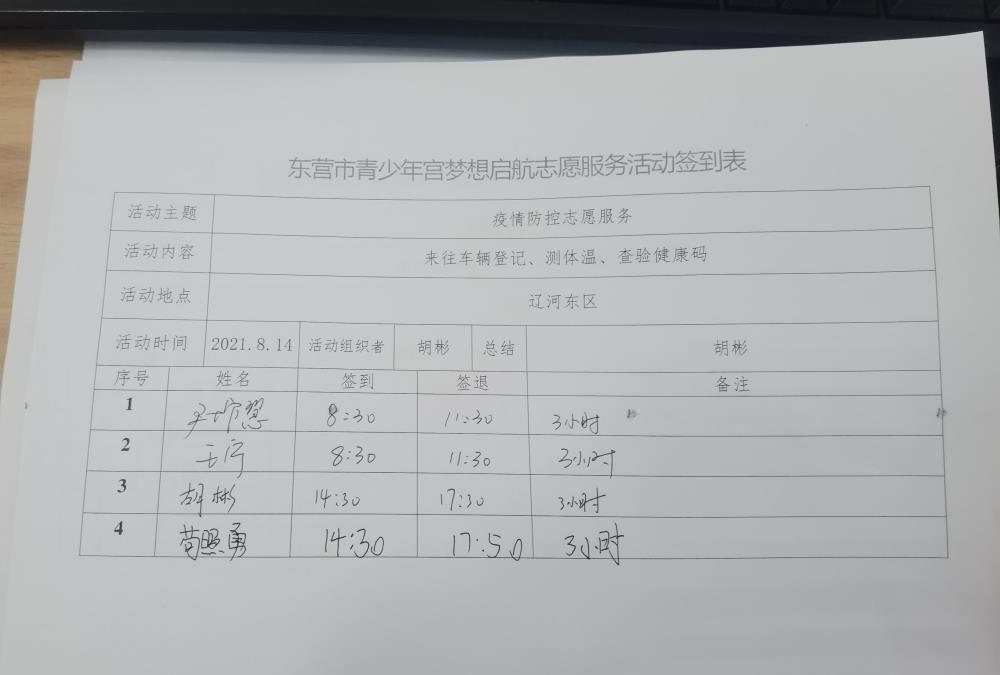 东营市青少年宫梦想启航志愿服务活动签到表
活动主题 疫情防控志愿服务
活动内容 来往车辆登记、测体温、查验健康码
活动地点 辽河东区
活动时间 2021.8.14 活动组织者 胡彬 总结 胡彬
序号 姓名 签到 签退 备注
1 8:30 11:30 3小时
2 王宁 8:30 11:30 3小时
3 胡彬 14:30 17:30 3小时
4 苟照勇 14:30 17:50 3小时